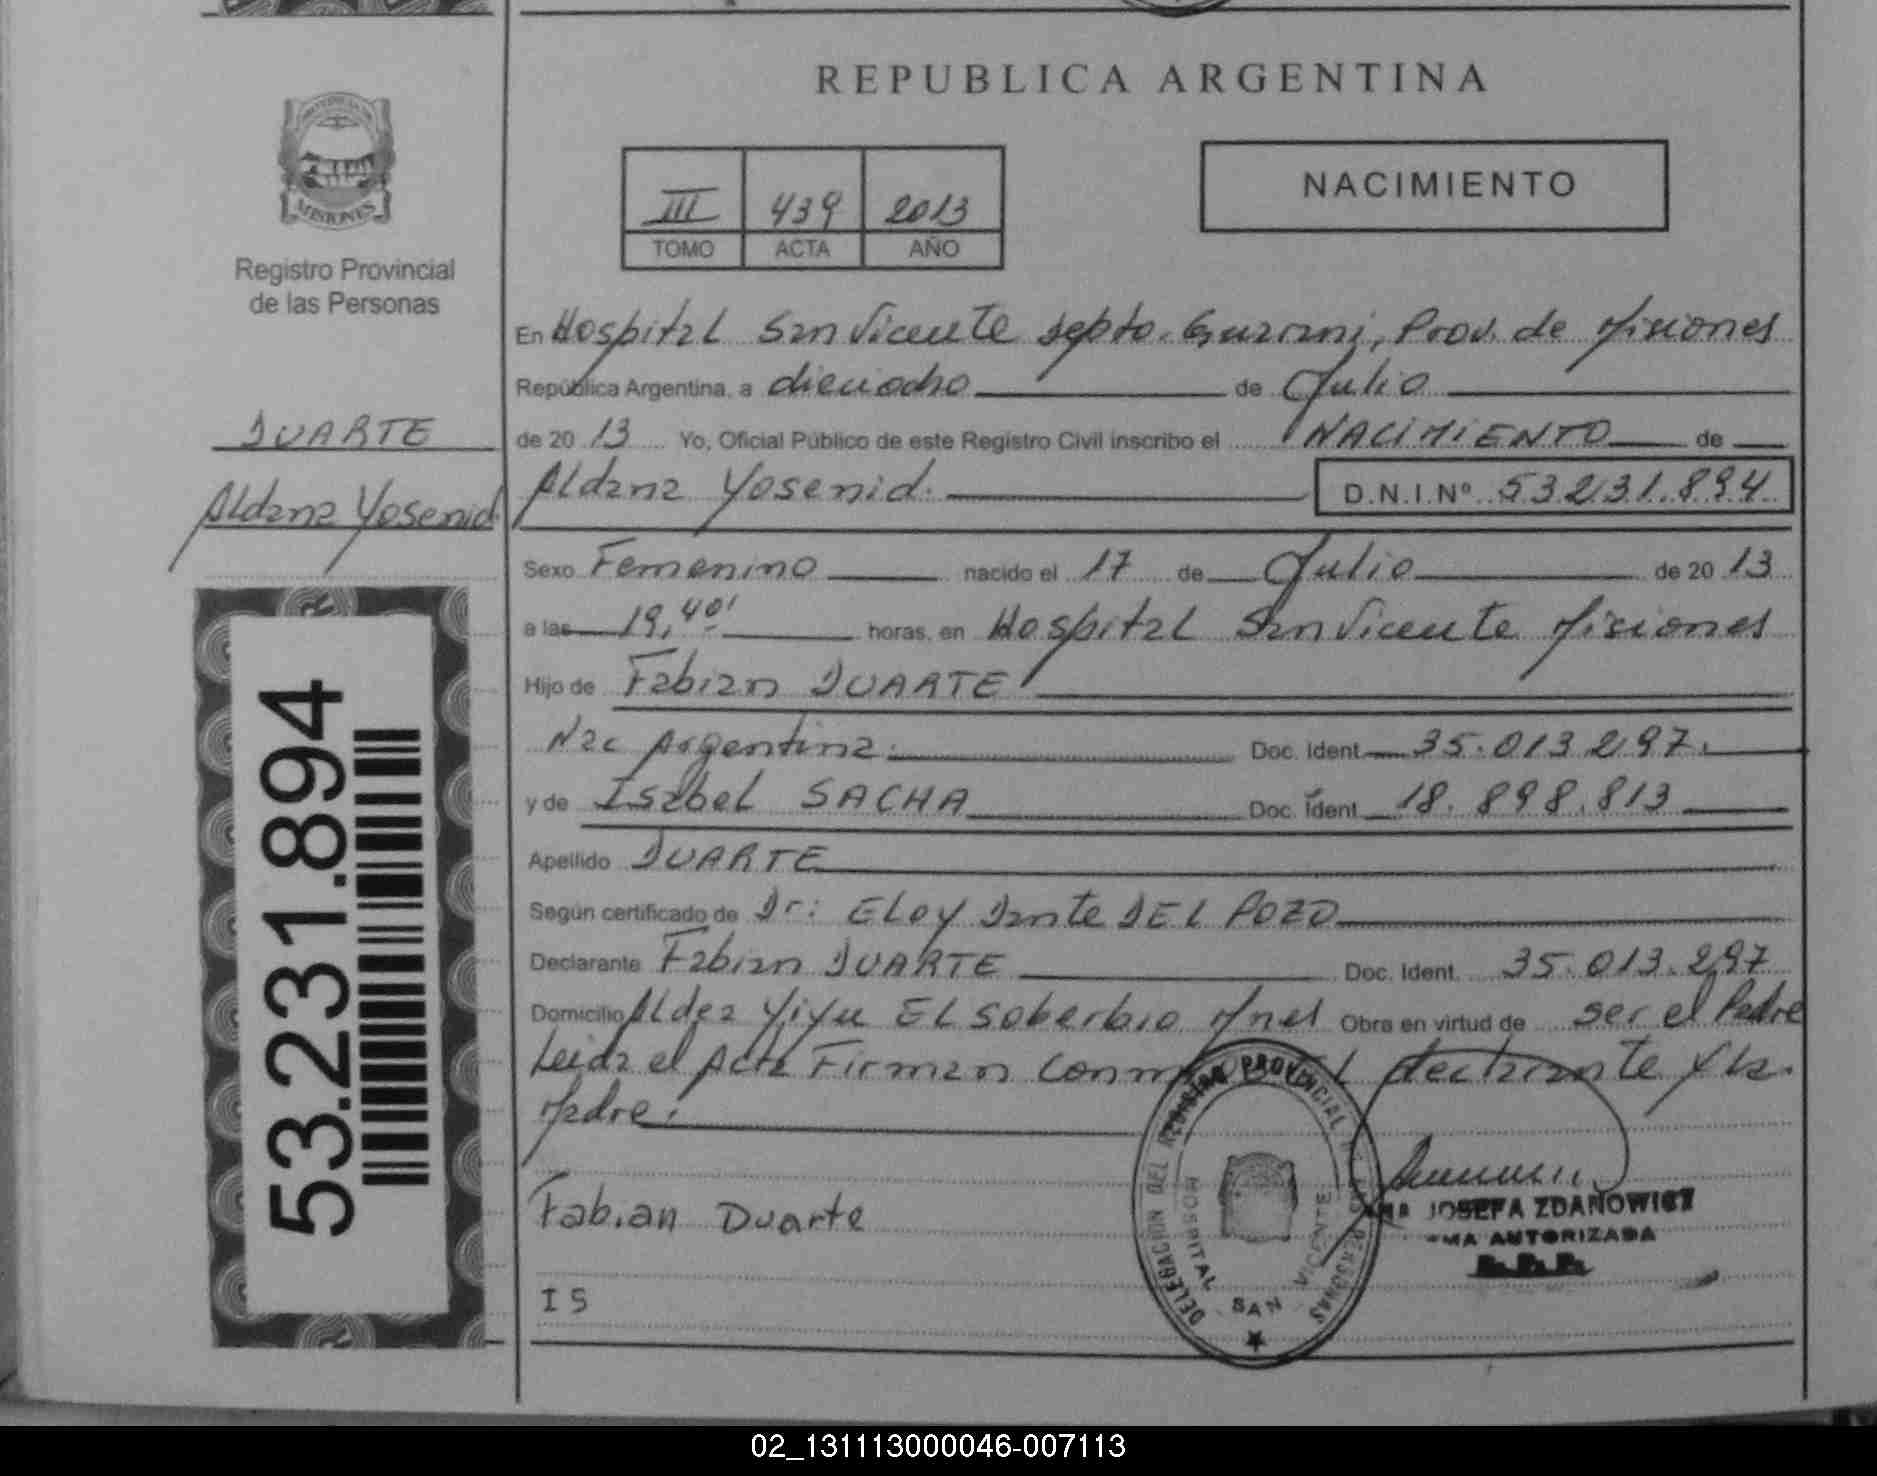 REPUBLICA ARGENTINA
MISIONES
Registro Provincial
de las Personas
III 439 2013
TOMO ACTA AÑO
NACIMIENTO
En Hospital San Vicente Depto. Guarani, Prov. de Misiones
República Argentina, a dieciocho de Julio
de 20 13 Yo, Oficial Público de este Registro Civil inscribo el NACIMIENTO de
DUARTE
Aldana Yosenid
Aldana Yosenid. D.N.I.Nº 53231.894
Sexo Femenino nacido el 17 de Julio de 20 13
a las 19,40' horas, en Hospital San Vicente Misiones
Hijo de Fabian DUARTE
Nac Argentina. Doc. Ident 35.013.297.
y de Isabel SACHA Doc. Ident 18.898.813
Apellido DUARTE
Según certificado de Dr: ELoy Dante DEL POZO
Declarante Fabian DUARTE Doc. Ident. 35.013.297
Domicilio Aldea Yiyu EL Soberbio Mnes Obra en virtud de ser el Padre
Leida el Acta Firman declarante y la
Madre.
Fabian Duarte
IS
53.231.894
DELEGACION DEL REGISTRO PROVINCIAL PERSONAS
HOSPITAL SAN VICENTE
JOSEFA ZDANOWICZ
AUTORIZADA
R.P.P.
02_131113000046-007113